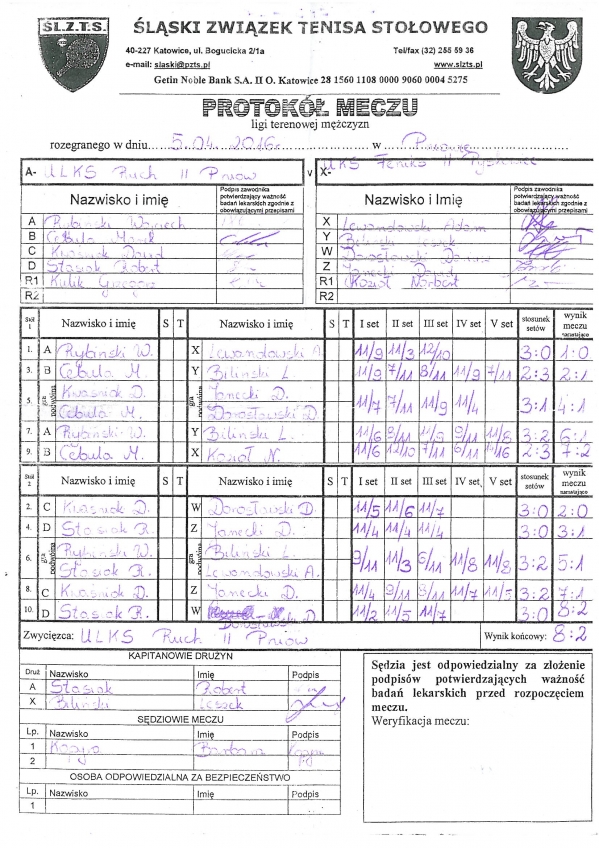 ŚL.Z.T.S.
ŚLĄSKI ZWIĄZEK TENISA STOŁOWEGO
40-227 Katowice, ul. Bogucicka 2/1a Tel/fax (32) 255 59 36
e-mail: slaski@pzts.pl www.slzts.pl
Getin Noble Bank S.A. II O. Katowice 28 1560 1108 0000 9060 0004 5275
PROTOKÓŁ MECZU
ligi terenowej mężczyzn
rozegranego w dniu 5.04.2016r. w
A- ULKS Ruch II Pniów v X- UKS Feniks II
Nazwisko i imię Podpis zawodnika potwierdzający ważność badań lekarskich zgodnie z obowiązującymi przepisami Nazwisko i Imię Podpis zawodnika potwierdzający ważność badań lekarskich zgodnie z obowiązującymi przepisami
A Rybiński Wojciech X Lewandowski Adam
B Cebula Marek Y Biliński Leszek
C Kwaśniok Dawid W Dorosławski
D Stasiok Robert Z Janecki Dawid
R1 Kulik Grzegorz R1 Kozioł Norbert
R2 R2
Stół 1 Nazwisko i imię S T Nazwisko i imię S T I set II set III set IV set V set stosunek setów wynik meczu narastająco
1. A Rybiński W. X Lewandowski A. 11/9 11/3 12/10 3:0 1:0
3. B Cebula M. Y Biliński L. 11/9 7/11 8/11 11/9 7/11 2:3 2:1
5. gra podwójna Kwaśniok D. gra podwójna Janecki D.
Cebula M. Dorosławski D. 11/7 7/11 11/9 11/4 3:1 4:1
7. A Rybiński W. Y Biliński L. 11/6 9/11 11/5 9/11 11/8 3:2 6:1
9. B Cebula M. X Kozioł N. 11/6 12/10 7/11 6/11 2:3 7:2
Stół 2 Nazwisko i imię S T Nazwisko i imię S T I set II set III set IV set V set stosunek setów wynik meczu narastająco
2. C Kwaśniok D. W Dorosławski D. 11/5 11/6 11/7 3:0 2:0
4. D Stasiok R. Z Janecki D. 11/4 11/4 11/4 3:0 3:1
6. gra podwójna Rybiński W. gra podwójna Biliński L.
Stasiok R. Lewandowski A. 9/11 11/3 6/11 11/8 11/8 3:2 5:1
8. C Kwaśniok D. Z Janecki D. 11/4 9/11 9/11 11/7 11/5 3:2 7:1
10. D Stasiok R. W Dorosławski D. 11/2 11/5 11/7 3:0 8:2
Zwycięzca: ULKS Ruch II Pniów Wynik końcowy: 8:2
KAPITANOWIE DRUŻYN
Druż Nazwisko Imię Podpis
A Stasiok Robert
X Biliński Leszek
SĘDZIOWIE MECZU
Lp. Nazwisko Imię Podpis
1 Barbara
2
OSOBA ODPOWIEDZIALNA ZA BEZPIECZEŃSTWO
Lp. Nazwisko Imię Podpis
1
Sędzia jest odpowiedzialny za złożenie
podpisów potwierdzających ważność
badań lekarskich przed rozpoczęciem
meczu.
Weryfikacja meczu: